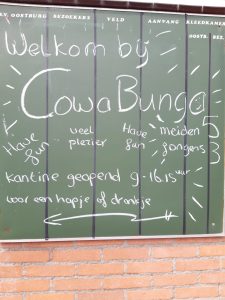 V.V. OOSTBURG BEZOEKERS VELD AANVANG KLEEDKAMER
OOSTB. BEZ.
Welkom bij
CowaBunga
Have fun veel plezier Have fun meiden jongens 5 3
kantine geopend 9-16.15 uur
voor een hapje of drankje